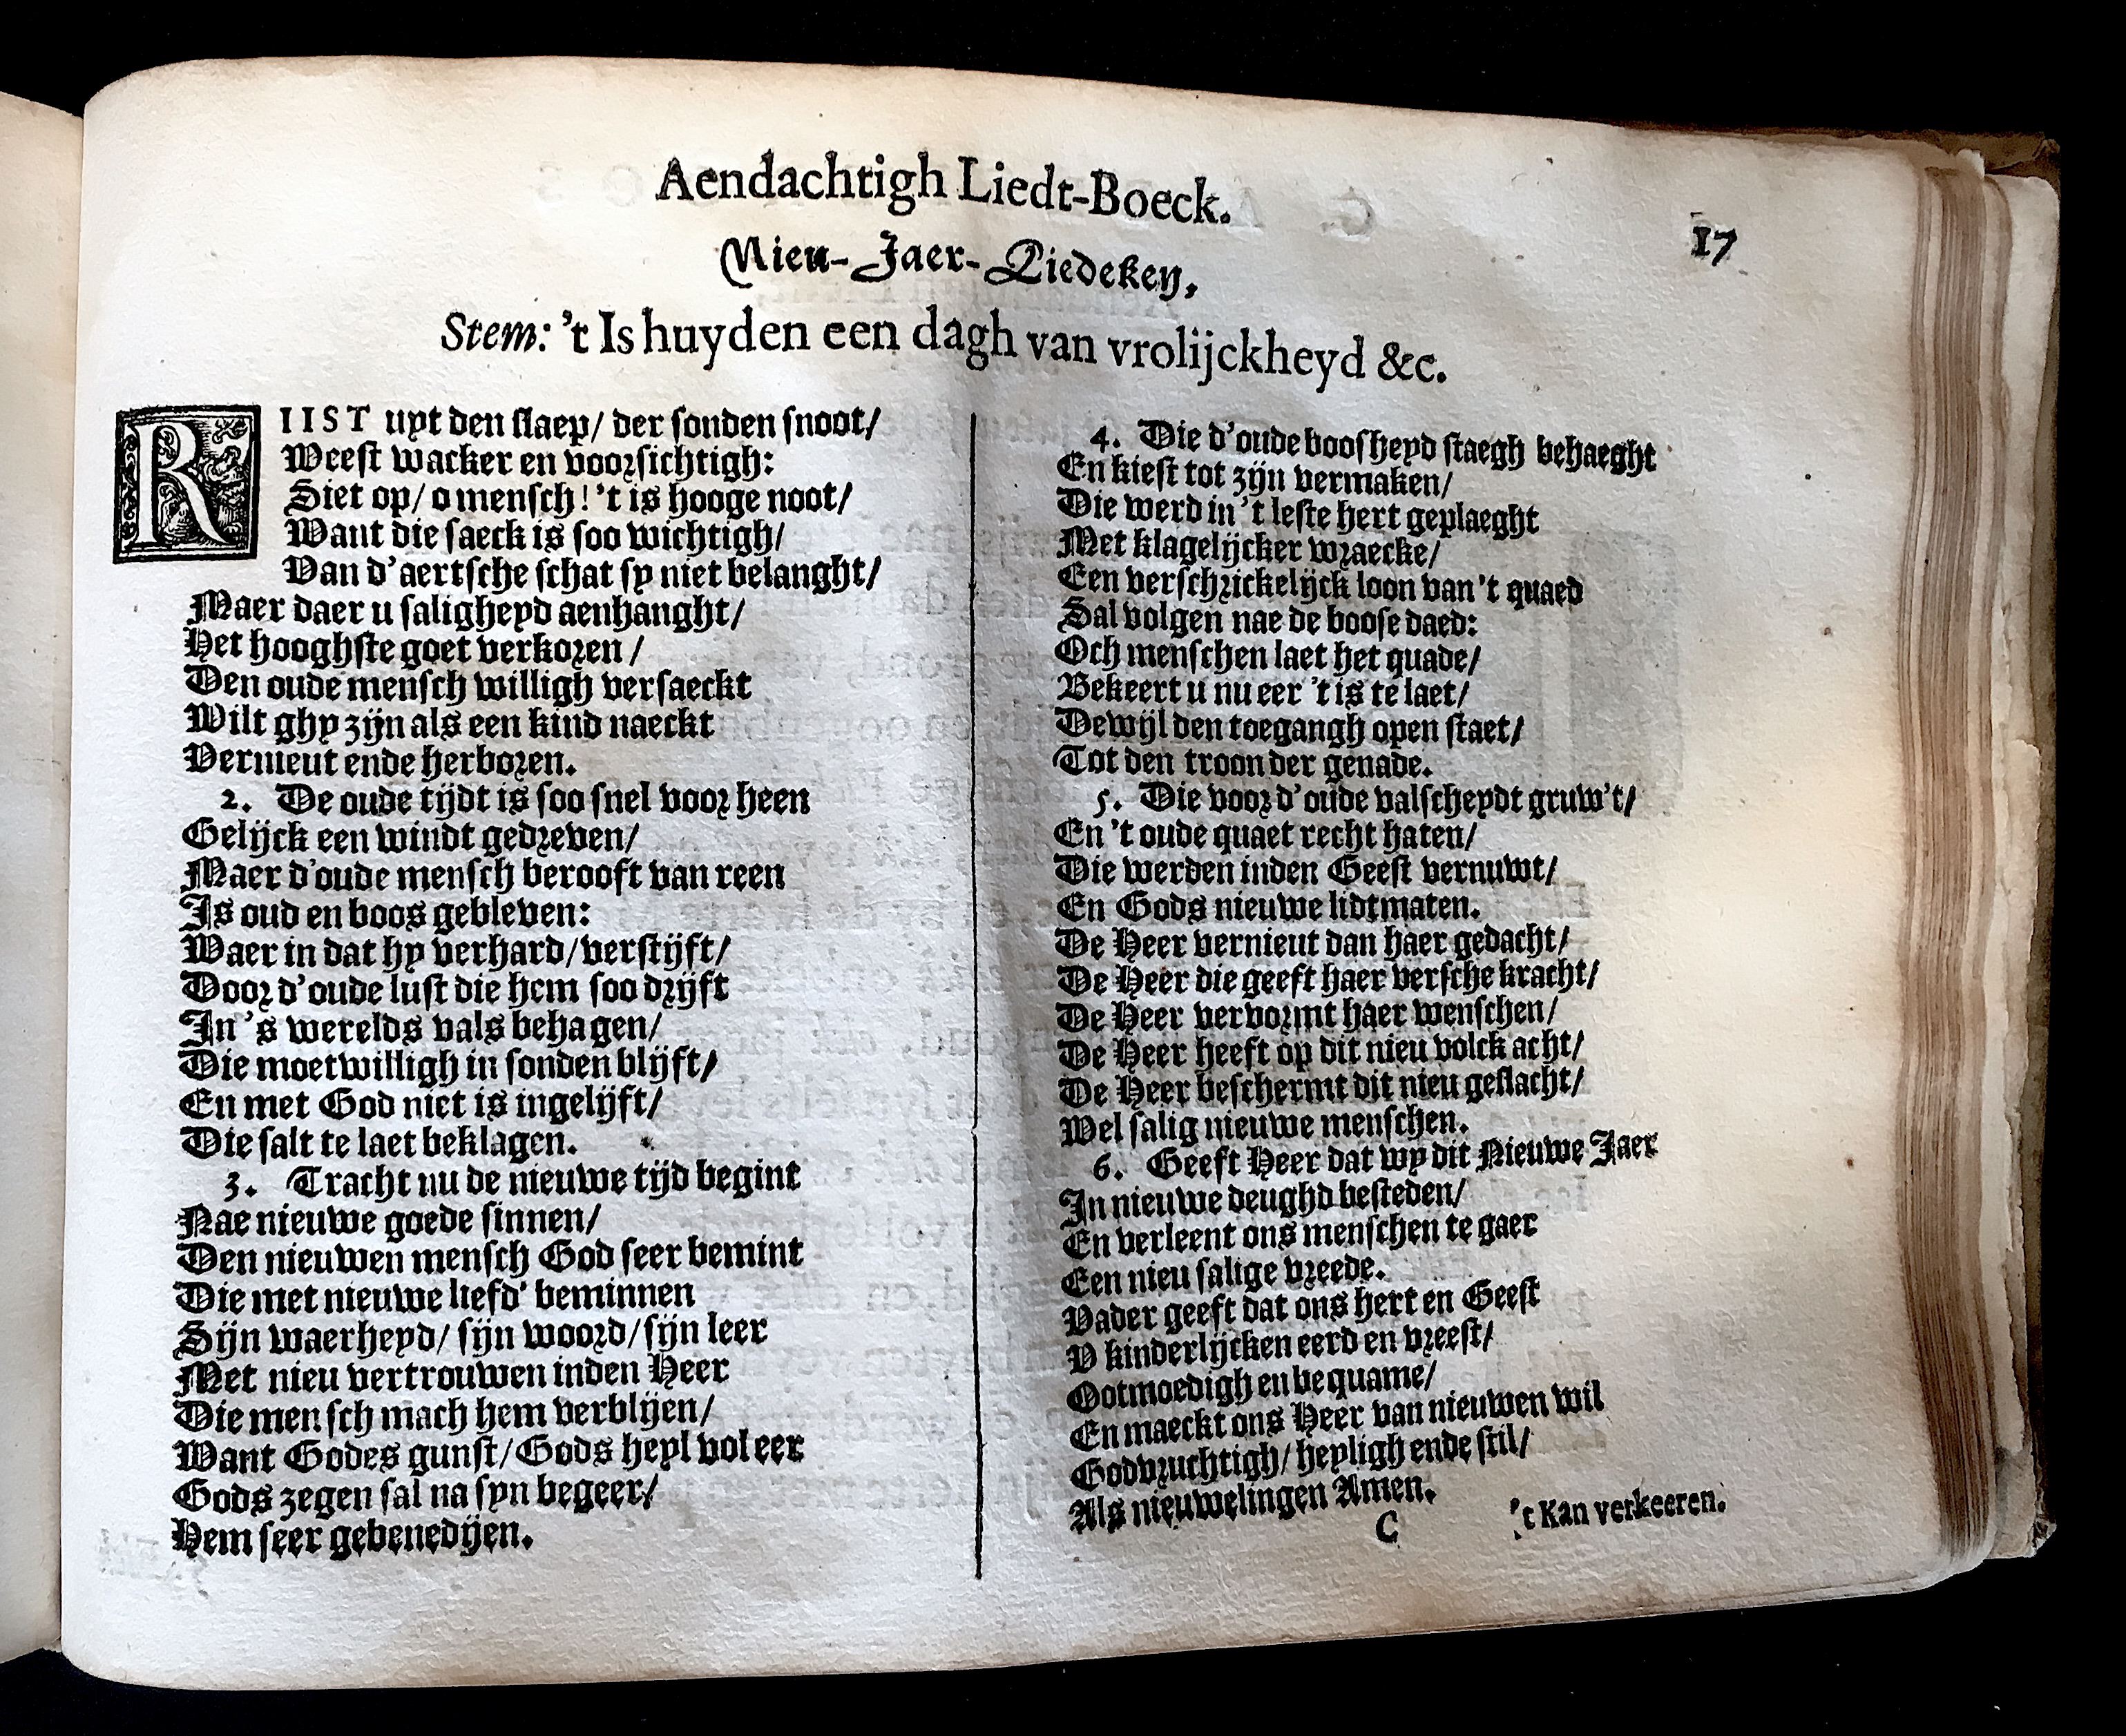 Aendachtigh Liedt-Boeck.
17
Nieu-Jaer-Liedeken,
Stem: 't Is huyden een dagh van vrolijckheyd &c.
RIIST uyt den slaep/ der sonden snoot/
Weest wacker en voorsichtigh:
Siet op/ o mensch! 't is hooge noot/
Want die saeck is soo wichtigh/
Van d'aertsche schat sy niet belanght/
Maer daer u saligheyd aenhanght/
Het hooghste goet verkoren/
Den oude mensch willigh versaeckt
Wilt ghy zijn als een kind naeckt
Vernieut ende herboren.
2. De oude tijdt is soo snel voor heen
Gelijck een windt gedreven/
Maer d'oude mensch berooft van reen
Is oud en boos gebleven:
Waer in dat hy verhard/ verstijft/
Door d'oude lust die hem soo drijft
In 's werelds vals behagen/
Die moetwilligh in sonden blijft/
En met God niet is ingelijft/
Die salt te laet beklagen.
3. Tracht nu de nieuwe tijd begint
Nae nieuwe goede sinnen/
Den nieuwen mensch God seer bemint
Die met nieuwe liefd' beminnen
Sijn waerheyd/ sijn woord/ sijn leer
Met nieu vertrouwen inden Heer
Die mensch mach hem verblijen/
Want Godes gunst/ Gods heyl vol eer
Gods zegen sal na syn begeer/
Hem seer gebenedijen.
4. Die d'oude boosheyd staegh behaeght
En kiest tot zijn vermaken/
Die werd in 't leste hert geplaeght
Met klagelijcker wraecke/
Een verschrickelijck loon van 't quaed
Sal volgen nae de boose daed:
Och menschen laet het quade/
Bekeert u nu eer 't is te laet/
Dewijl den toegangh open staet/
Tot den troon der genade.
5. Die voor d'oude valscheydt gruw't/
En 't oude quaet recht haten/
Die werden inden Geest vernuwt/
En Gods nieuwe lidtmaten.
De Heer vernieut dan haer gedacht/
De Heer die geeft haer versche kracht/
De Heer vervormt haer wenschen/
De Heer heeft op dit nieu volck acht/
De Heer beschermt dit nieu geslacht/
Wel salig nieuwe menschen.
6. Geeft Heer dat wy dit Nieuwe Jaer
In nieuwe deughd besteden/
En verleent ons menschen te gaer
Een nieu salige vreede.
Vader geeft dat ons hert en Geest
V kinderlijcken eerd en vreest/
Ootmoedigh en bequame/
En maeckt ons Heer van nieuwen wil
Godvruchtigh/ heyligh ende stil/
Als nieuwelingen Amen.
C
't Kan verkeeren.